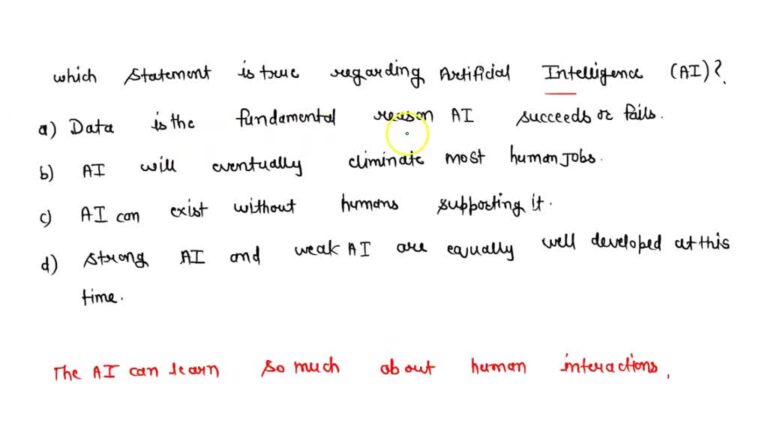 which statement is true regarding Artificial Intelligence (AI)?
a) Data is the fundamental reason AI succeeds or fails.
b) AI will eventually eliminate most human jobs.
c) AI can exist without humans supporting it.
d) strong AI and weak AI are equally well developed at this
time.
The AI can learn so much about human interactions.